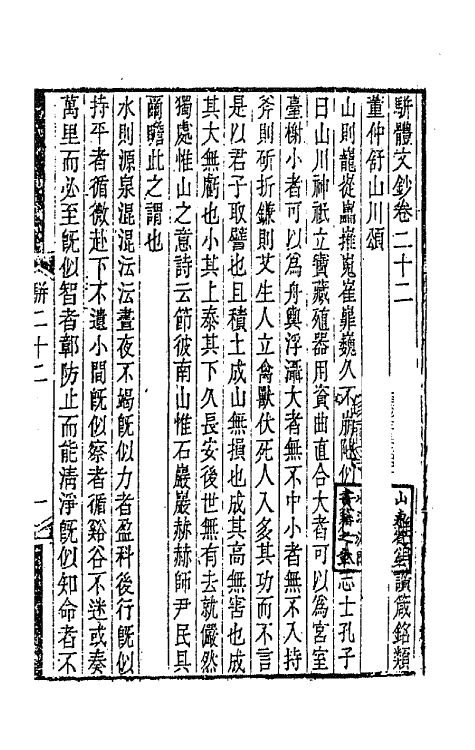 駢體文鈔卷二十二
讚箴銘類
董仲舒山川頌
山則巃嵸藟嶊嵬嶊嶵巍久不崩阤似夫仁人志士孔子
曰山川神祗立寶藏殖器用資曲直合大者可以為宮室
臺榭小者可以為舟輿浮灄大者無不中小者無不入持
斧則斫折鐮則艾生人立禽獸伏死人入多其功而不言
是以君子取譬也且積土成山無損也成其高無害也成
其大無虧也小其上泰其下久長安後世無有去就儼然
獨處惟山之意詩云節彼南山惟石巖巖赫赫師尹民具
爾瞻此之謂也
水則源泉混混沄沄晝夜不竭旣似力者盈科後行旣似
持平者循微赴下不遺小間旣似察者循谿谷不迷或奏
萬里而必至旣似智者鄣防止而能淸淨旣似知命者不
駢二十二
一